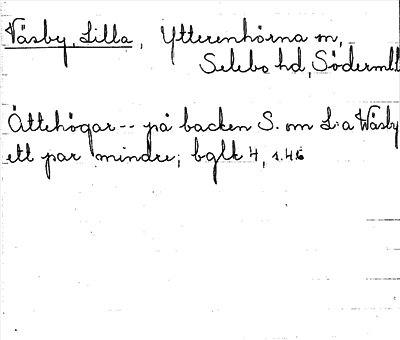 Väsby, Lilla, Ytterenhörna sn,
Selebo hd, Södermll
Ättehögar -- på backen S. om L:a Wäsby
ett par mindre; bglk 4, s. 46